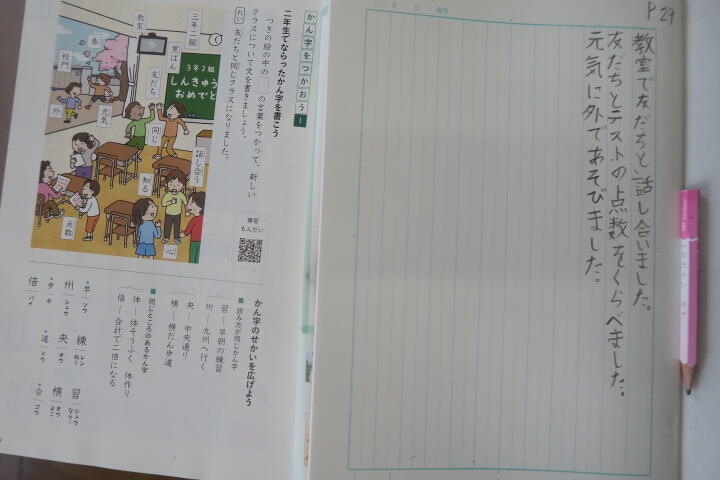 P29
教室で友だちと話し合いました。
友だちとテストの点数をくらべました。
元気に外であそびました。
月 日 曜日
かん字をつかおう1
二年生でならったかん字を書こう
つぎの絵の中の□の言葉をつかって、新しい
クラスについて文を書きましょう。
れい 友だちと同じクラスになりました。
練習
もんだい
三年二組
教室
黒ばん
3年2組
しんきゅう
おめでと
春
校門
友だち
元気
外
同じ
話し合う
知る
点数
心
かん字のせかいを広げよう
■読み方が同じかん字
習―早朝の練習
州―九州へ行く
央―中央通り
横―横だん歩道
■同じところのあるかん字
体―体そうふく 体作り
倍―合計で二倍になる
早 ソウ
練 レン ねる
習 シュウ ならう
州 シュウ
央 オウ
横 オウ よこ
歩 ホ
道 ドウ
合 ゴウ
倍 バイ